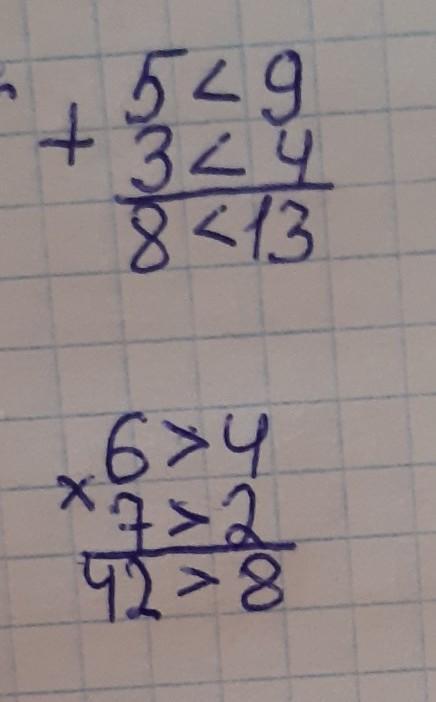 5 < 9
+ 3 < 4
8 < 13
6 > 4
× 7 > 2
42 > 8